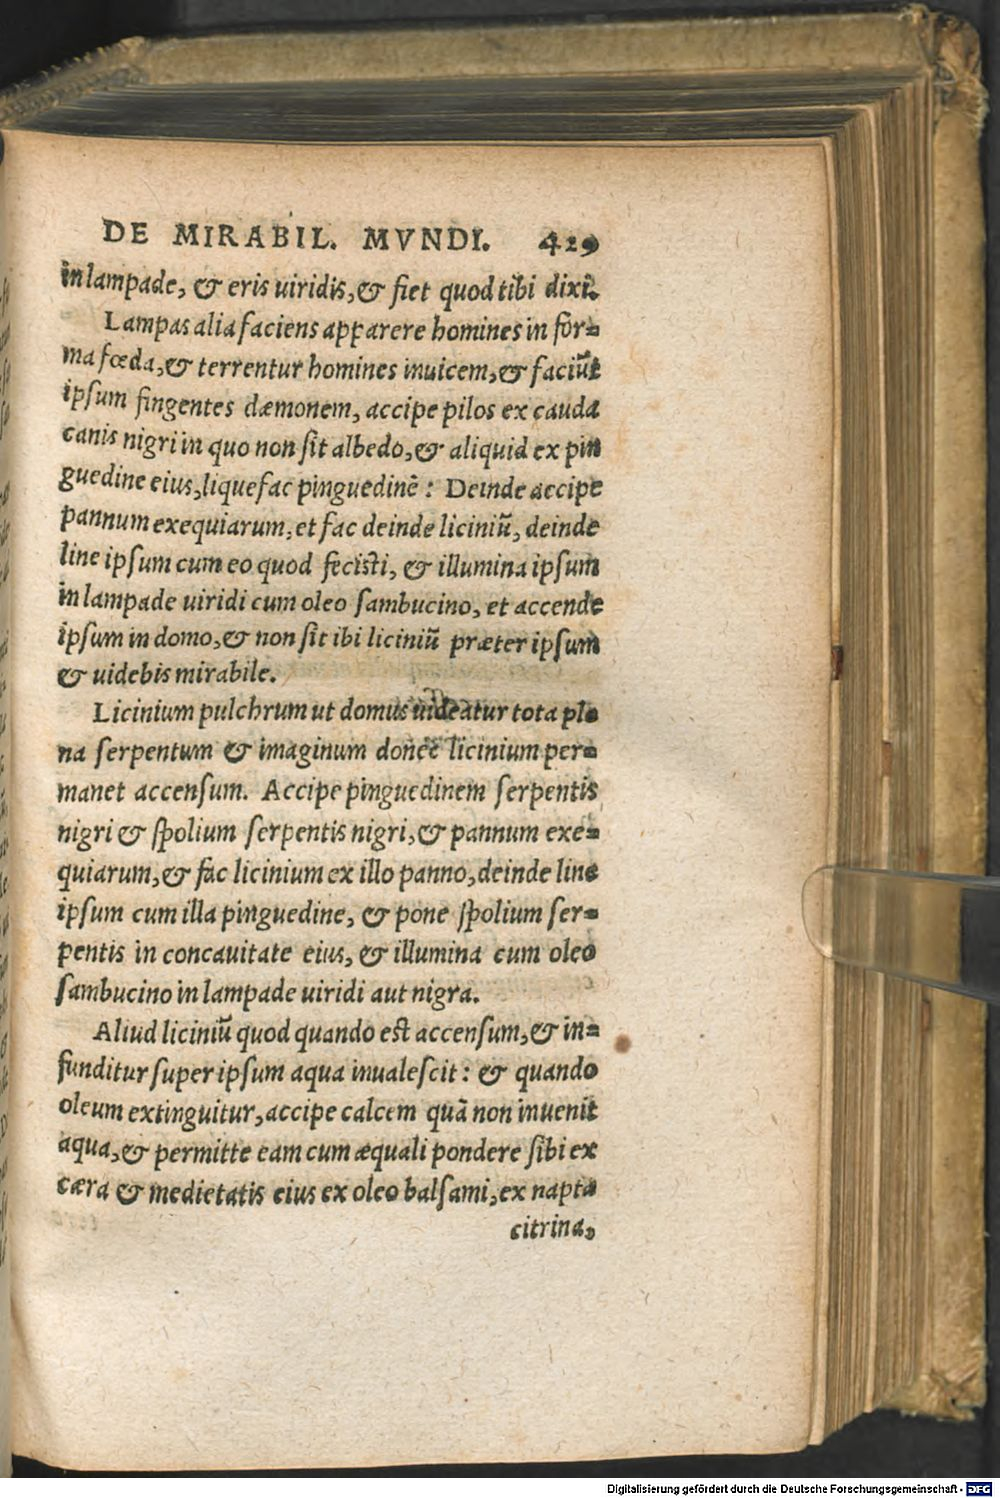 DE MIRABIL. MVNDI. 429
in lampade, & eris uiridis, & fiet quod tibi dixi.
Lampas alia faciens apparere homines in for=
ma fœda, & terrentur homines inuicem, & faciūt
ipsum fingentes dæmonem, accipe pilos ex cauda
canis nigri in quo non sit albedo, & aliquid ex pin
guedine eius, liquefac pinguedinē: Deinde accipe
pannum exequiarum, et fac deinde liciniū, deinde
line ipsum cum eo quod fecisti, & illumina ipsum
in lampade uiridi cum oleo sambucino, et accende
ipsum in domo, & non sit ibi liciniū præter ipsum
& uidebis mirabile.
Licinium pulchrum ut domus uideatur tota ple
na serpentum & imaginum donec licinium per=
manet accensum. Accipe pinguedinem serpentis
nigri & spolium serpentis nigri, & pannum exe=
quiarum, & fac licinium ex illo panno, deinde line
ipsum cum illa pinguedine, & pone spolium ser=
pentis in concauitate eius, & illumina cum oleo
sambucino in lampade uiridi aut nigra.
Aliud liciniū quod quando est accensum, & in=
funditur super ipsum aqua inualescit: & quando
oleum extinguitur, accipe calcem quā non inuenit
aqua, & permitte eam cum æquali pondere sibi ex
cæra & medietatis eius ex oleo balsami, ex napta
citrina,
Digitalisierung gefördert durch die Deutsche Forschungsgemeinschaft - DFG